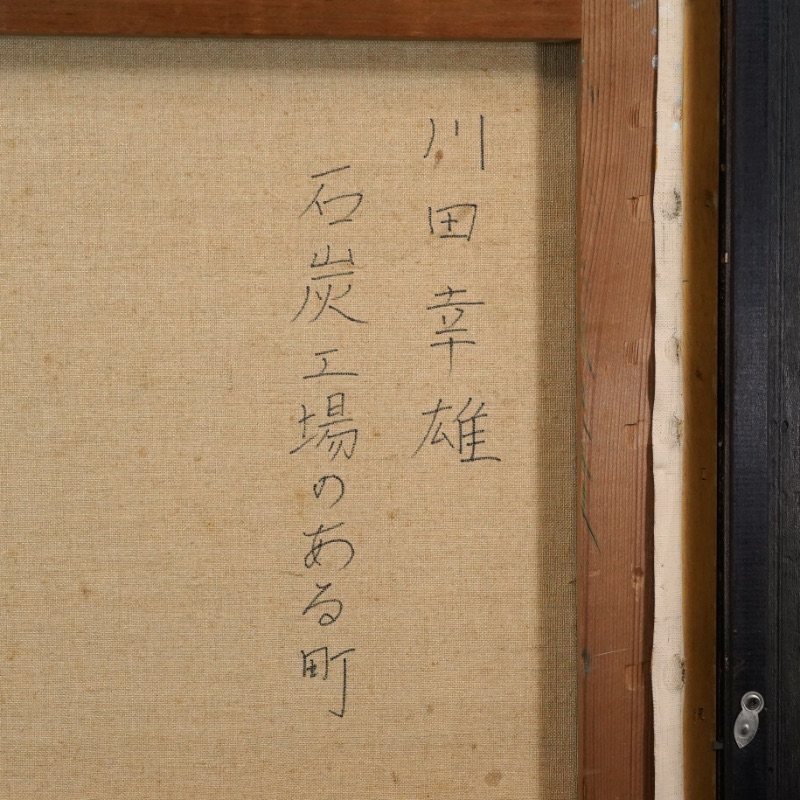 川田幸雄
石炭工場のある町